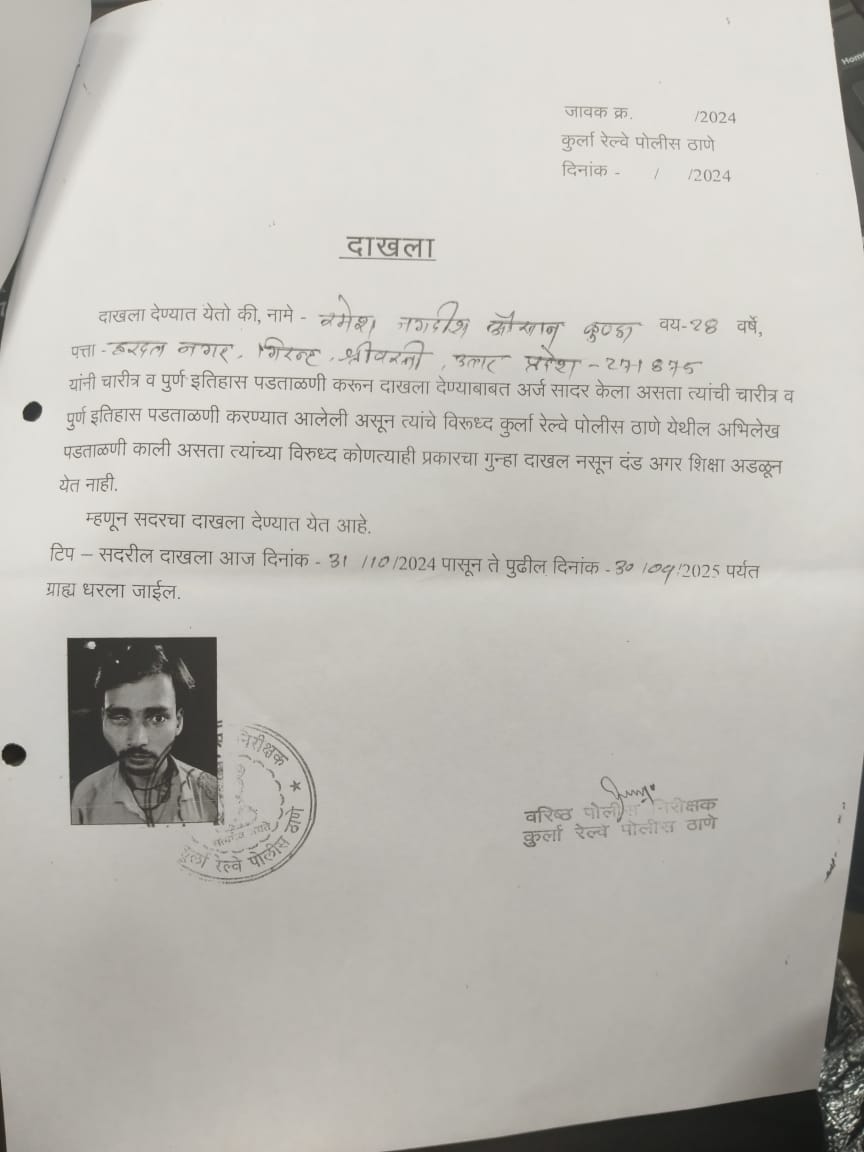 जावक क्र. /2024
कुर्ला रेल्वे पोलीस ठाणे
दिनांक - / /2024
दाखला
दाखला देण्यात येतो की, नामे - रमेश जगदीश वय-28 वर्षे,
पत्ता - नगर, गिरन्ट, श्रीवस्ती, उत्तर प्रदेश - 271875
यांनी चारीत्र व पुर्ण इतिहास पडताळणी करून दाखला देण्याबाबत अर्ज सादर केला असता त्यांची चारीत्र व
पुर्ण इतिहास पडताळणी करण्यात आलेली असून त्यांचे विरूध्द कुर्ला रेल्वे पोलीस ठाणे येथील अभिलेख
पडताळणी काली असता त्यांच्या विरुध्द कोणत्याही प्रकारचा गुन्हा दाखल नसून दंड अगर शिक्षा अडळून
येत नाही.
म्हणून सदरचा दाखला देण्यात येत आहे.
टिप – सदरील दाखला आज दिनांक - 31 /10/2024 पासून ते पुढील दिनांक - 30 /09/2025 पर्यंत
ग्राह्य धरला जाईल.
निरीक्षक
कुर्ला रेल्वे पोलीस ठाणे
वरिष्ठ पोलीस निरीक्षक
कुर्ला रेल्वे पोलीस ठाणे